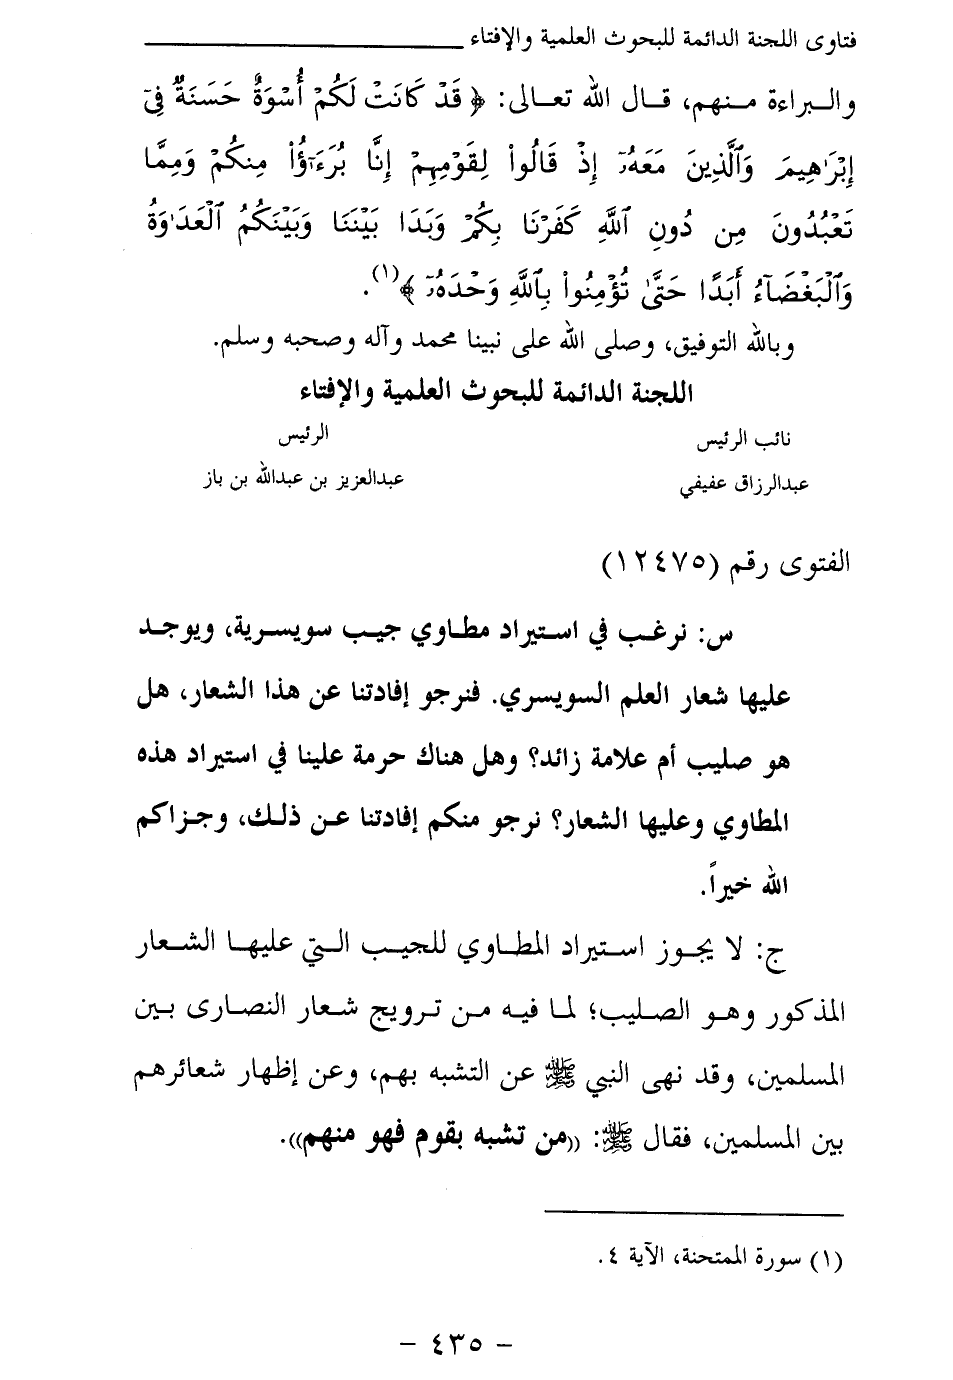 فتاوى اللجنة الدائمة للبحوث العلمية والإفتاء
والبراءة منهم، قال الله تعالى: ﴿ قَدْ كَانَتْ لَكُمْ أُسْوَةٌ حَسَنَةٌ فِىٓ
إِبْرَٰهِيمَ وَٱلَّذِينَ مَعَهُۥٓ إِذْ قَالُوا۟ لِقَوْمِهِمْ إِنَّا بُرَءَٰٓؤُا۟ مِنكُمْ وَمِمَّا
تَعْبُدُونَ مِن دُونِ ٱللَّهِ كَفَرْنَا بِكُمْ وَبَدَا بَيْنَنَا وَبَيْنَكُمُ ٱلْعَدَٰوَةُ
وَٱلْبَغْضَآءُ أَبَدًا حَتَّىٰ تُؤْمِنُوا۟ بِٱللَّهِ وَحْدَهُۥٓ ﴾(١).
وبالله التوفيق، وصلى الله على نبينا محمد وآله وصحبه وسلم.
اللجنة الدائمة للبحوث العلمية والإفتاء
نائب الرئيس الرئيس
عبدالرزاق عفيفي عبدالعزيز بن عبدالله بن باز
الفتوى رقم (١٢٤٧٥)
س: نرغب في استيراد مطاوي جيب سويسرية، ويوجد
عليها شعار العلم السويسري. فنرجو إفادتنا عن هذا الشعار، هل
هو صليب أم علامة زائد؟ وهل هناك حرمة علينا في استيراد هذه
المطاوي وعليها الشعار؟ نرجو منكم إفادتنا عن ذلك، وجزاكم
الله خيراً.
ج: لا يجوز استيراد المطاوي للجيب التي عليها الشعار
المذكور وهو الصليب؛ لما فيه من ترويج شعار النصارى بين
المسلمين، وقد نهى النبي ﷺ عن التشبه بهم، وعن إظهار شعائرهم
بين المسلمين، فقال ﷺ: ((من تشبه بقوم فهو منهم)).
(١) سورة الممتحنة، الآية ٤.
- ٤٣٥ -